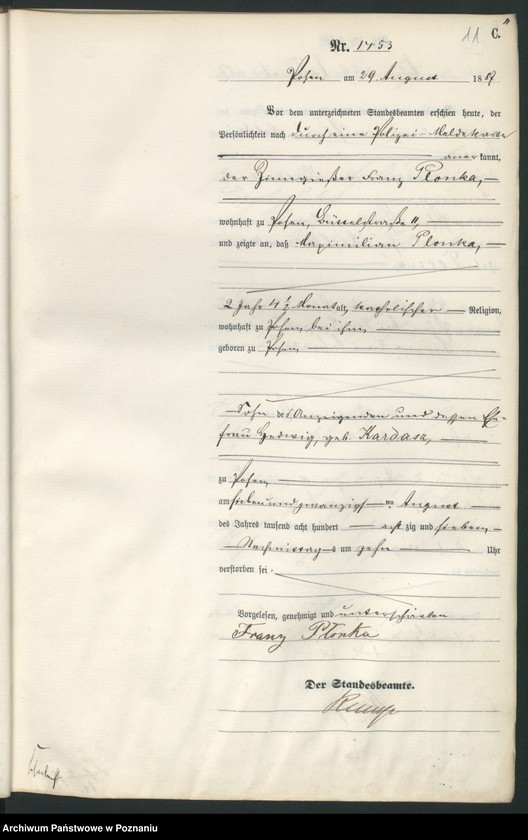 11 C.
Nr. 1453
Posen am 29 August 1887
Vor dem unterzeichneten Standesbeamten erschien heute, der
Persönlichkeit nach durch eine Polizei-Meldekarte
anerkannt,
der Zinngießer Franz Plonka,
wohnhaft zu Posen, Büttelstraße 11,
und zeigte an, daß Maximilian Plonka,
2 Jahr 4½ Monat alt, katholischer Religion,
wohnhaft zu Posen bei ihm
geboren zu Posen
Sohn des Anzeigenden und dessen Ehe-
frau Hedwig, geb. Kardasz,
zu Posen
am sieben und zwanzigsten August
des Jahres tausend acht hundert achtzig und sieben
Nachmittags um zehn Uhr
verstorben sei.
Vorgelesen, genehmigt und unterschrieben
Franz Płonka
Der Standesbeamte.
Archiwum Państwowe w Poznaniu